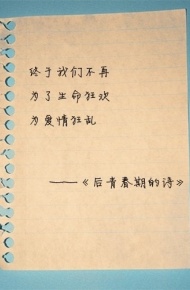 终于我们不再
为了生命狂欢
为爱情狂乱
——《后青春期的诗》